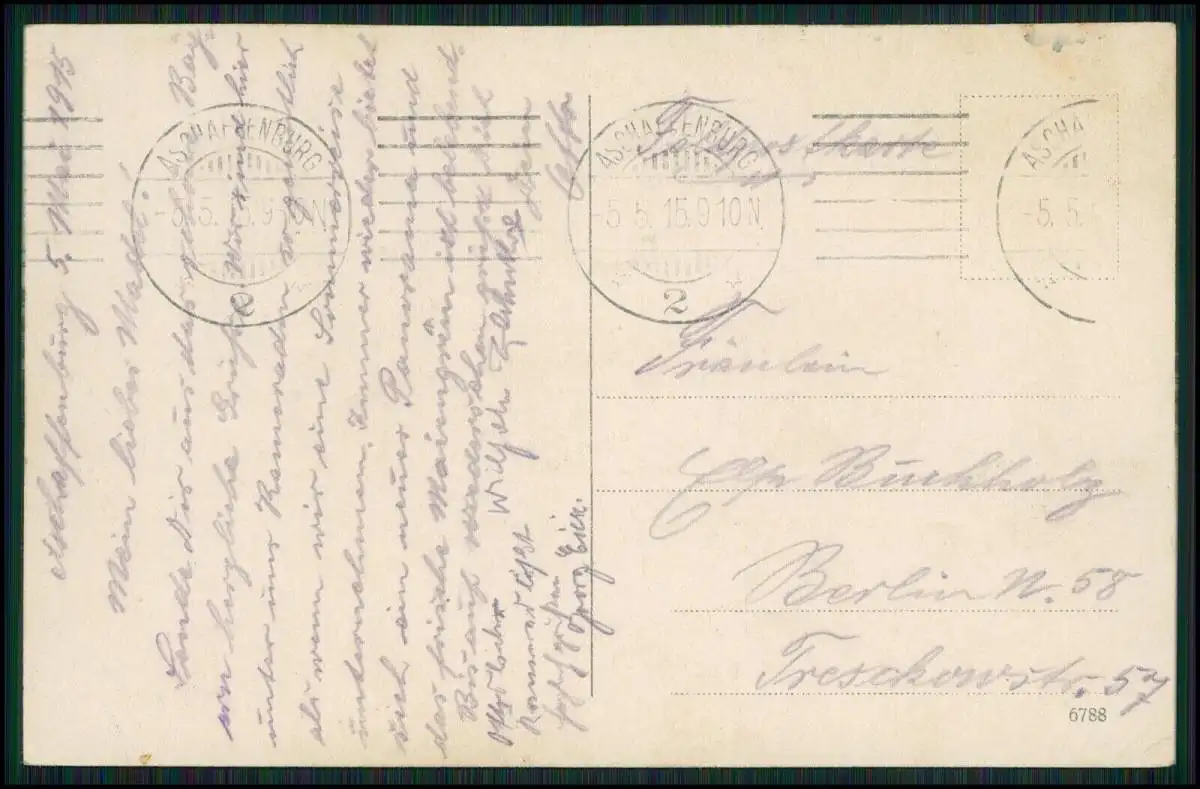 Aschaffenburg 5. Mai 1915
Mein liebes Mädel!
Sende Dir aus das schöne Bay
ern herzliche Grüße. Wir sind hier
unter uns Kameraden so gemütlich
als wenn wir eine Sommerreise
unternehmen. Immer wieder bietet
sich ein neues Panorama und
das frische Maiengrün ist
Bis aufs Wiedersehen grüßt dich
Dein
Otto
Wilhelm
läßt
grüßen
Georg
ASCHAFFENBURG
-5.5.15.9-10N.
2
ASCHAFFENBURG
-5.5.15.9-10N.
2
ASCHA
-5.5.
Feldpostkarte
Fräulein
Buchholz
Berlin N. 58
Treskowstr. 57
6788